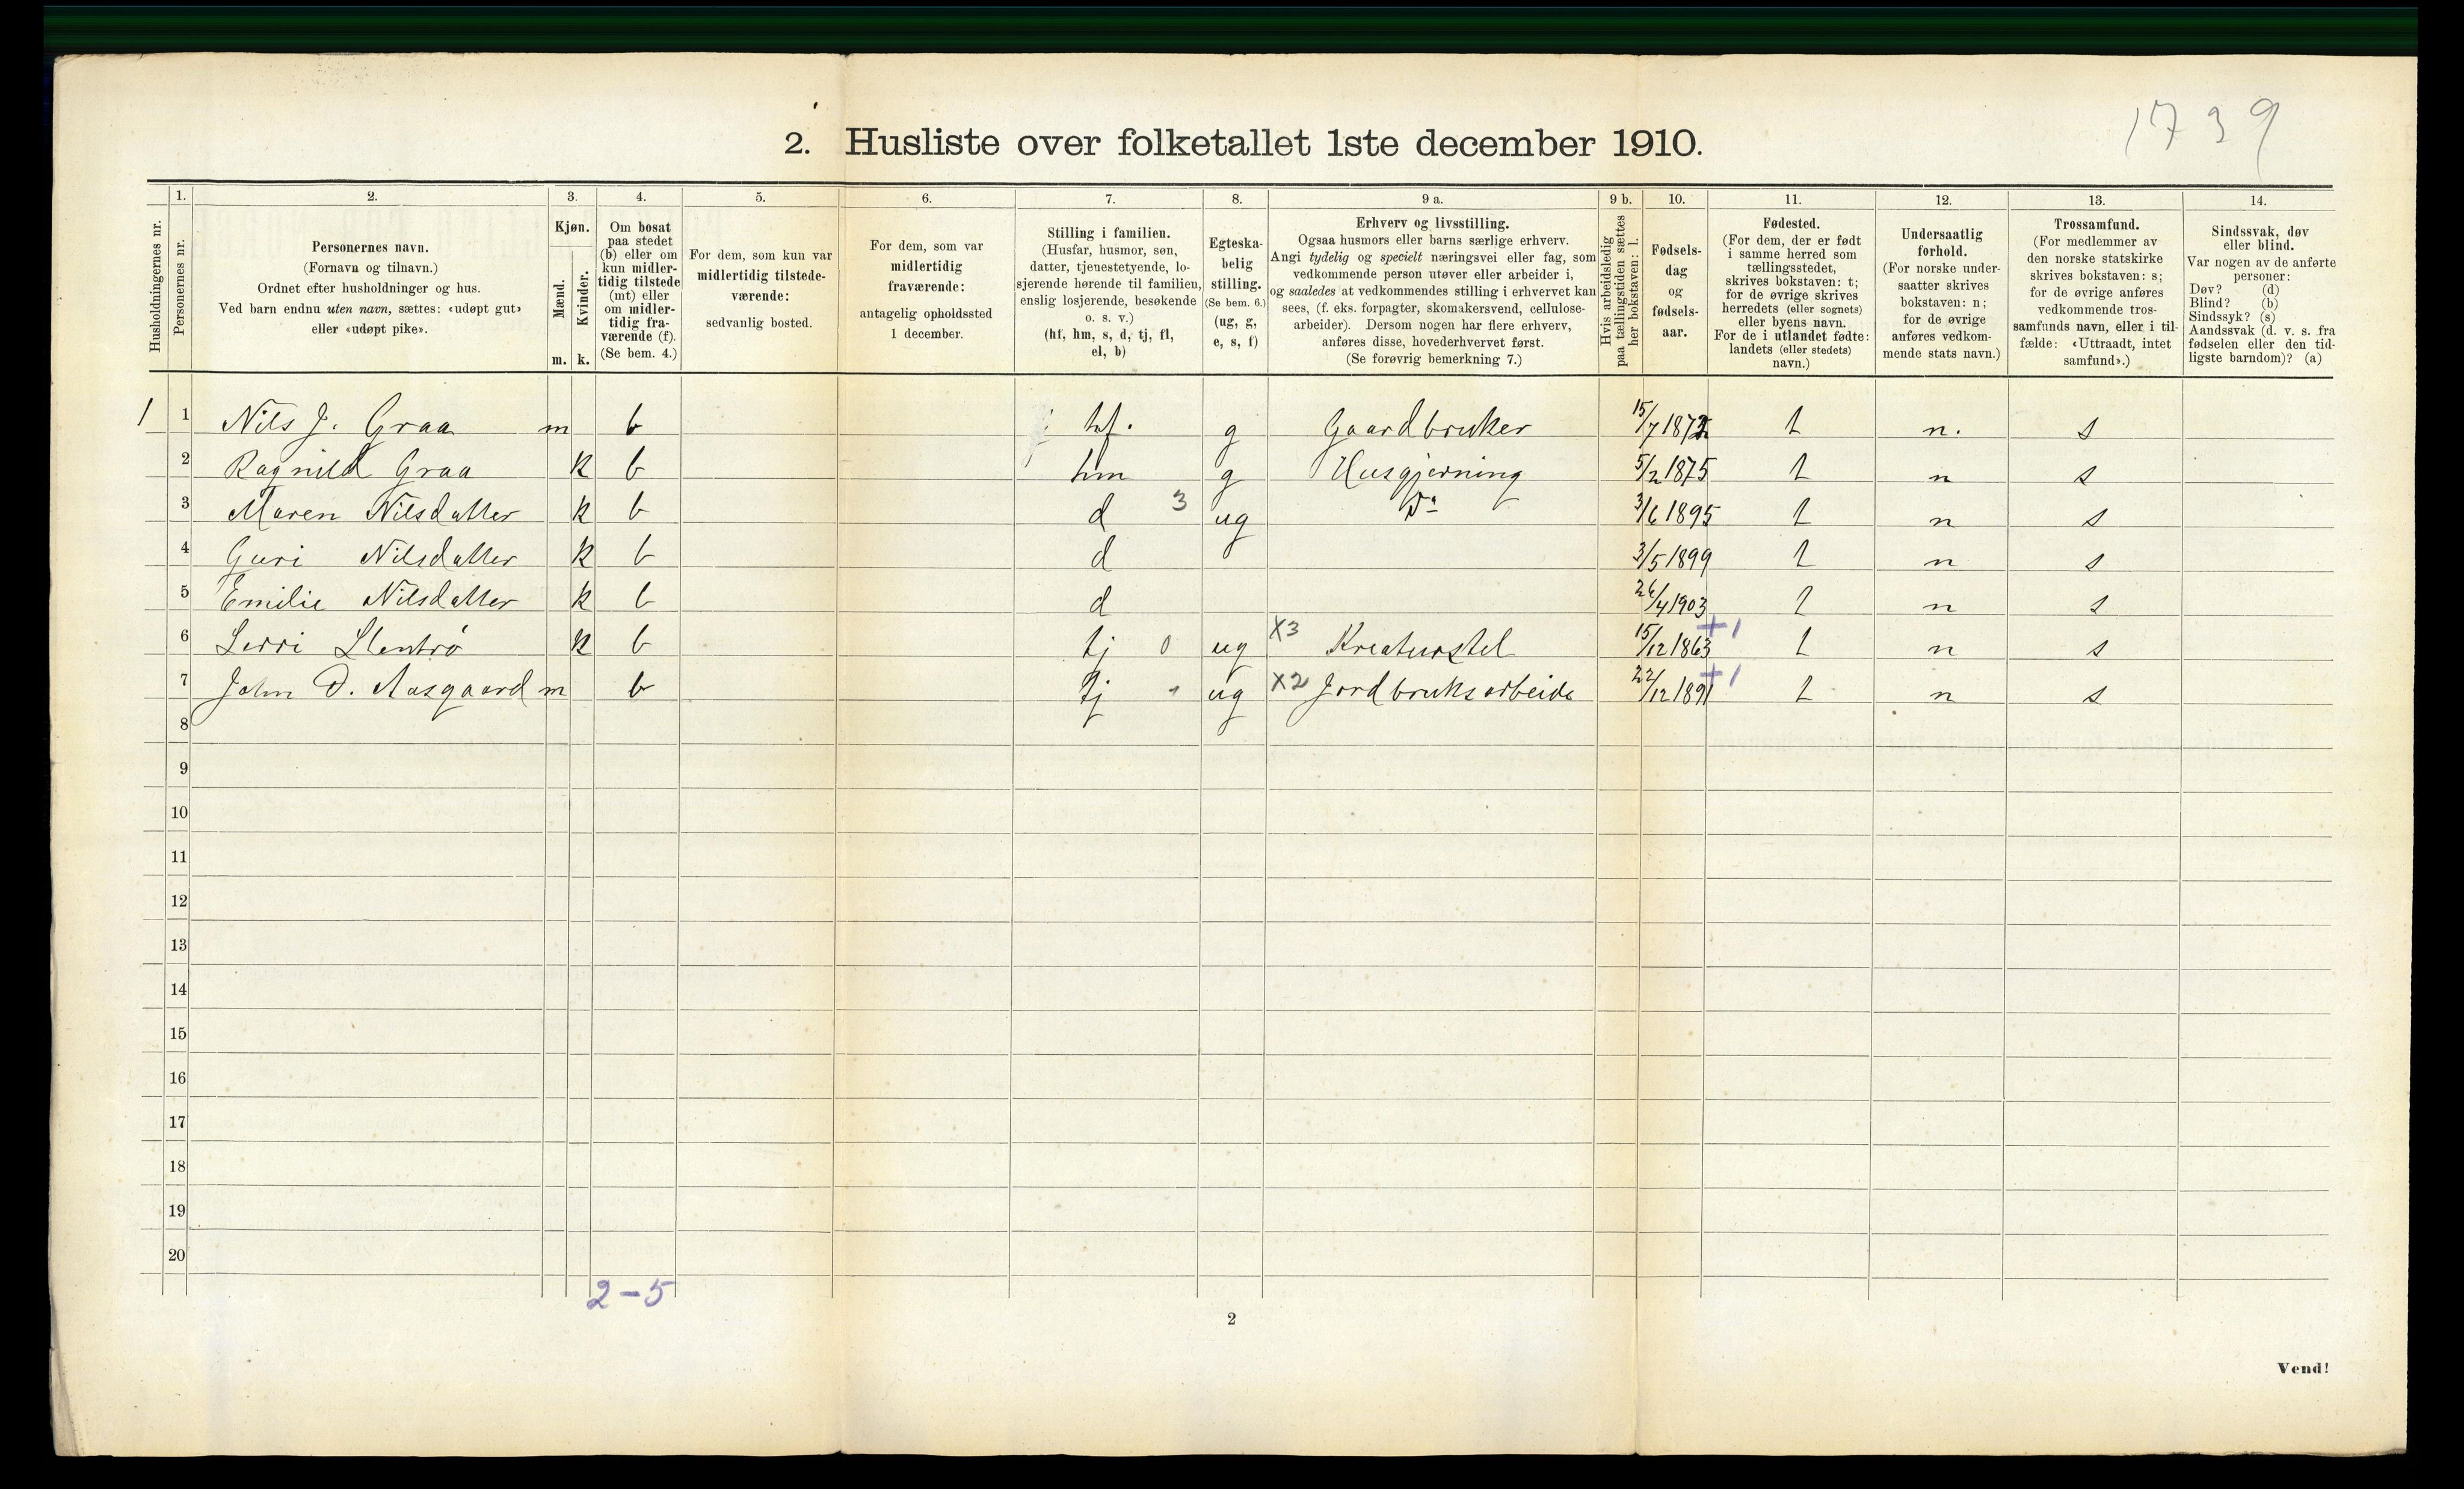 1739
2. Husliste over folketallet 1ste december 1910.
Husholdningernes nr.
1.
Personernes nr.
2.
Personernes navn.
(Fornavn og tilnavn.)
Ordnet efter husholdninger og hus.
Ved barn endnu uten navn, sættes: «udøpt gut»
eller «udøpt pike».
3.
Kjøn.
Mænd.
Kvinder.
m. k.
4.
Om bosat
paa stedet
(b) eller om
kun midler-
tidig tilstede
(mt) eller
om midler-
tidig fra-
værende (f).
(Se bem. 4.)
5.
For dem, som kun var
midlertidig tilstede-
værende:
sedvanlig bosted.
6.
For dem, som var
midlertidig
fraværende:
antagelig opholdssted
1 december.
7.
Stilling i familien.
(Husfar, husmor, søn,
datter, tjenestetyende, lo-
sjerende hørende til familien,
enslig losjerende, besøkende
o. s. v.)
(hf, hm, s, d, tj, fl,
el, b)
8.
Egteska-
belig
stilling.
(Se bem. 6.)
(ug, g,
e, s, f)
9 a.
Erhverv og livsstilling.
Ogsaa husmors eller barns særlige erhverv.
Angi tydelig og specielt næringsvei eller fag, som
vedkommende person utøver eller arbeider i,
og saaledes at vedkommendes stilling i erhvervet kan
sees, (f. eks. forpagter, skomakersvend, cellulose-
arbeider). Dersom nogen har flere erhverv,
anføres disse, hovederhvervet først.
(Se forøvrig bemerkning 7.)
9 b.
Hvis arbeidsledig
paa tællingstiden sættes
her bokstaven: l.
10.
Fødsels-
dag
og
fødsels-
aar.
11.
Fødested.
(For dem, der er født
i samme herred som
tællingsstedet,
skrives bokstaven: t;
for de øvrige skrives
herredets (eller sognets)
eller byens navn.
For de i utlandet fødte:
landets (eller stedets)
navn.)
12.
Undersaatlig
forhold.
(For norske under-
saatter skrives
bokstaven: n;
for de øvrige
anføres vedkom-
mende stats navn.)
13.
Trossamfund.
(For medlemmer av
den norske statskirke
skrives bokstaven: s;
for de øvrige anføres
vedkommende tros-
samfunds navn, eller i til-
fælde: «Uttraadt, intet
samfund».)
14.
Sindssvak, døv
eller blind.
Var nogen av de anførte
personer:
Døv? (d)
Blind? (b)
Sindssyk? (s)
Aandssvak (d. v. s. fra
fødselen eller den tid-
ligste barndom)? (a)
1 1 Nils J. Graa m b hf. g Gaardbruker 15/7 1872 t n. s
2 Ragnild Graa k b hm g Husgjerning 5/2 1875 t n s
3 Maren Nilsdatter k b d 3 ug Do 3/6 1895 t n s
4 Guri Nilsdatter k b d 3/5 1899 t n s
5 Emilie Nilsdatter k b d 26/4 1903 t n s
6 k b tj 0 ug X3 Kreaturstel 15/12 1863 +1 t n s
7 John D. Aasgaard m b tj ug X2 Jordbruksarbeide 22/12 1891 +1 t n s
8
9
10
11
12
13
14
15
16
17
18
19
20
2-5
2
Vend!